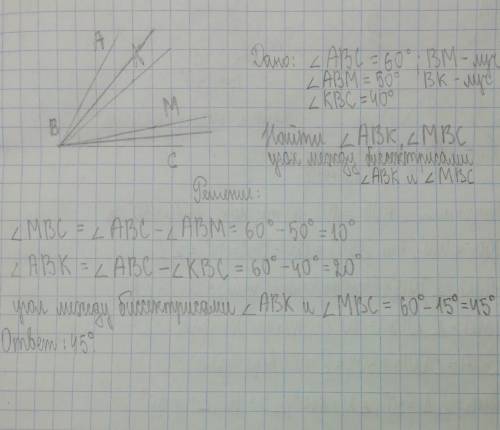 A
K
M
B
C
Дано: ∠ABC = 60°; BM - луч
∠ABM = 50° BK - луч
∠KBC = 40°
Найти ∠ABK, ∠MBC
угол между биссектрисами
∠ABK и ∠MBC
Решение:
∠MBC = ∠ABC - ∠ABM = 60° - 50° = 10°
∠ABK = ∠ABC - ∠KBC = 60° - 40° = 20°
угол между биссектрисами ∠ABK и ∠MBC = 60° - 15° = 45°
Ответ: 45°